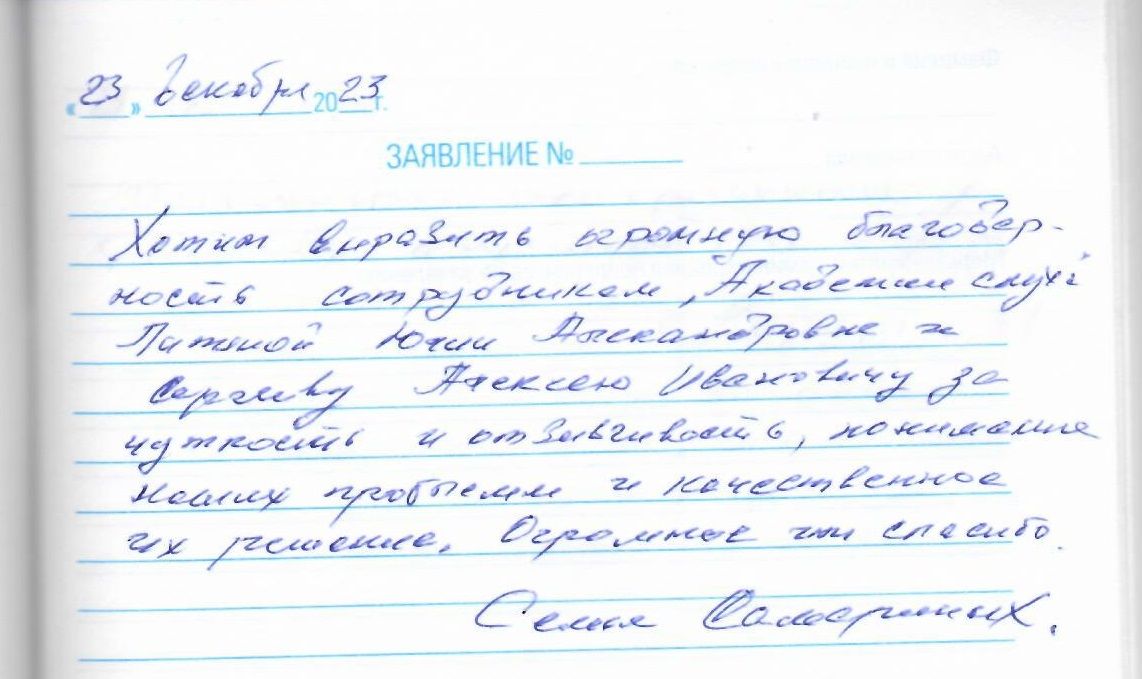 «23» декабря 2023 г.
ЗАЯВЛЕНИЕ №
Хотим выразить огромную благодар-
ность сотрудникам "Академии слуха"
Юлии Александровне и
Сергееву Алексею Ивановичу за
чуткость и отзывчивость, понимание
наших проблемм и качественное
их решение. Огромное им спасибо.
Семья